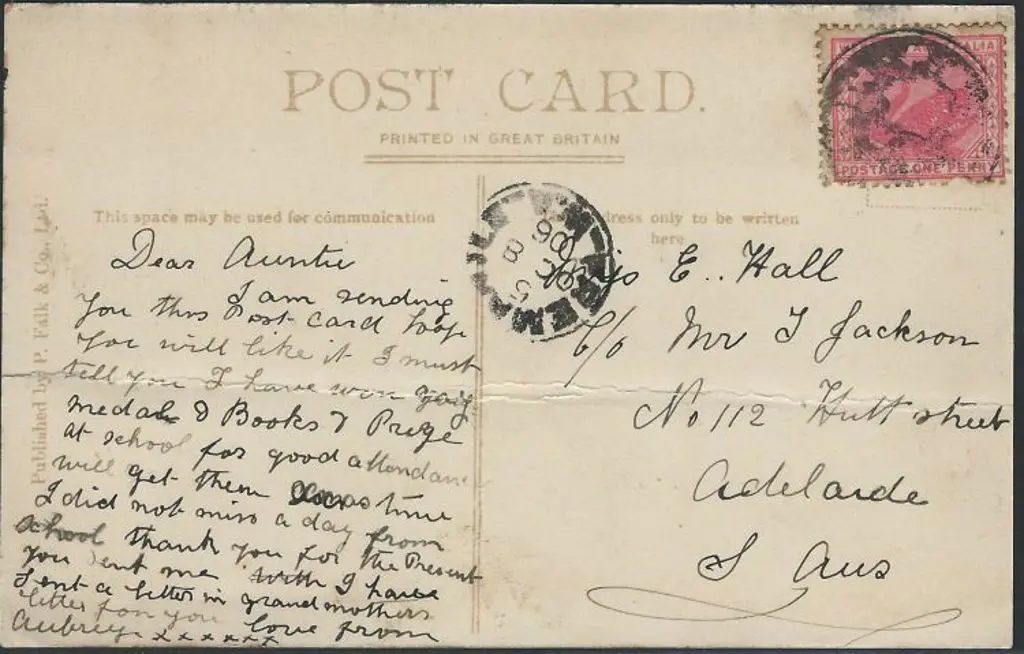 POST CARD.
PRINTED IN GREAT BRITAIN
POSTAGE ONE PENNY
Published by P. Falk & Co., Ltd.
This space may be used for communication
dress only to be written
here
Dear Auntie
I am sending
You this Post card hope
You will like it I must
tell you I have won
medal & Books & Prize
at school for good attendance
will get them Xmas time
I did not miss a day from
school thank you for the Present
you sent me with I have
sent a letter in grandmothers
letter for you love from
Aubrey x x x x x x
E.. Hall
C/o Mr T Jackson
No 112 Hutt street
Adelaide
S Aus